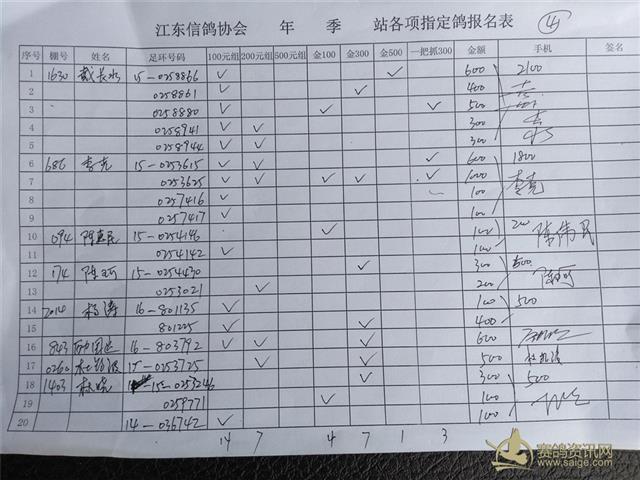 江东信鸽协会 年 季 站各项指定鸽报名表 ④
序号 棚号 姓名 足环号码 100元组 200元组 500元组 金100 金300 金500 一把抓300 金额 手机 签名
1 1630 戴长水 15-0258866 ✓ ✓ 600 2100
2 0258861 ✓ ✓ 400
3 0258880 ✓ ✓ ✓ 500
4 0258941 ✓ ✓ 300
5 0258944 ✓ ✓ 300
6 686 李克 15-0253615 ✓ ✓ ✓ 600 1800
7 0253625 ✓ ✓ ✓ ✓ ✓ 1000 李克
8 0257416 ✓ 100
9 0257417 ✓ 100
10 094 15-0254146 ✓ 100 200 陈伟民
11 0254142 ✓ 100
12 174 15-0254430 ✓ 300 500
13 0253021 ✓ 200
14 2014 杨涛 16-801135 ✓ 100 500
15 801225 ✓ ✓ 400
16 803 16-803792 ✓ ✓ ✓ 600
17 0260 15-0253725 ✓ ✓ 500
18 1403 15-0253246 ✓ 300 500
19 0259771 ✓ 100
20 14-036742 ✓ 100
14 7 4 7 1 3
赛鸽资讯网
www.saige.com